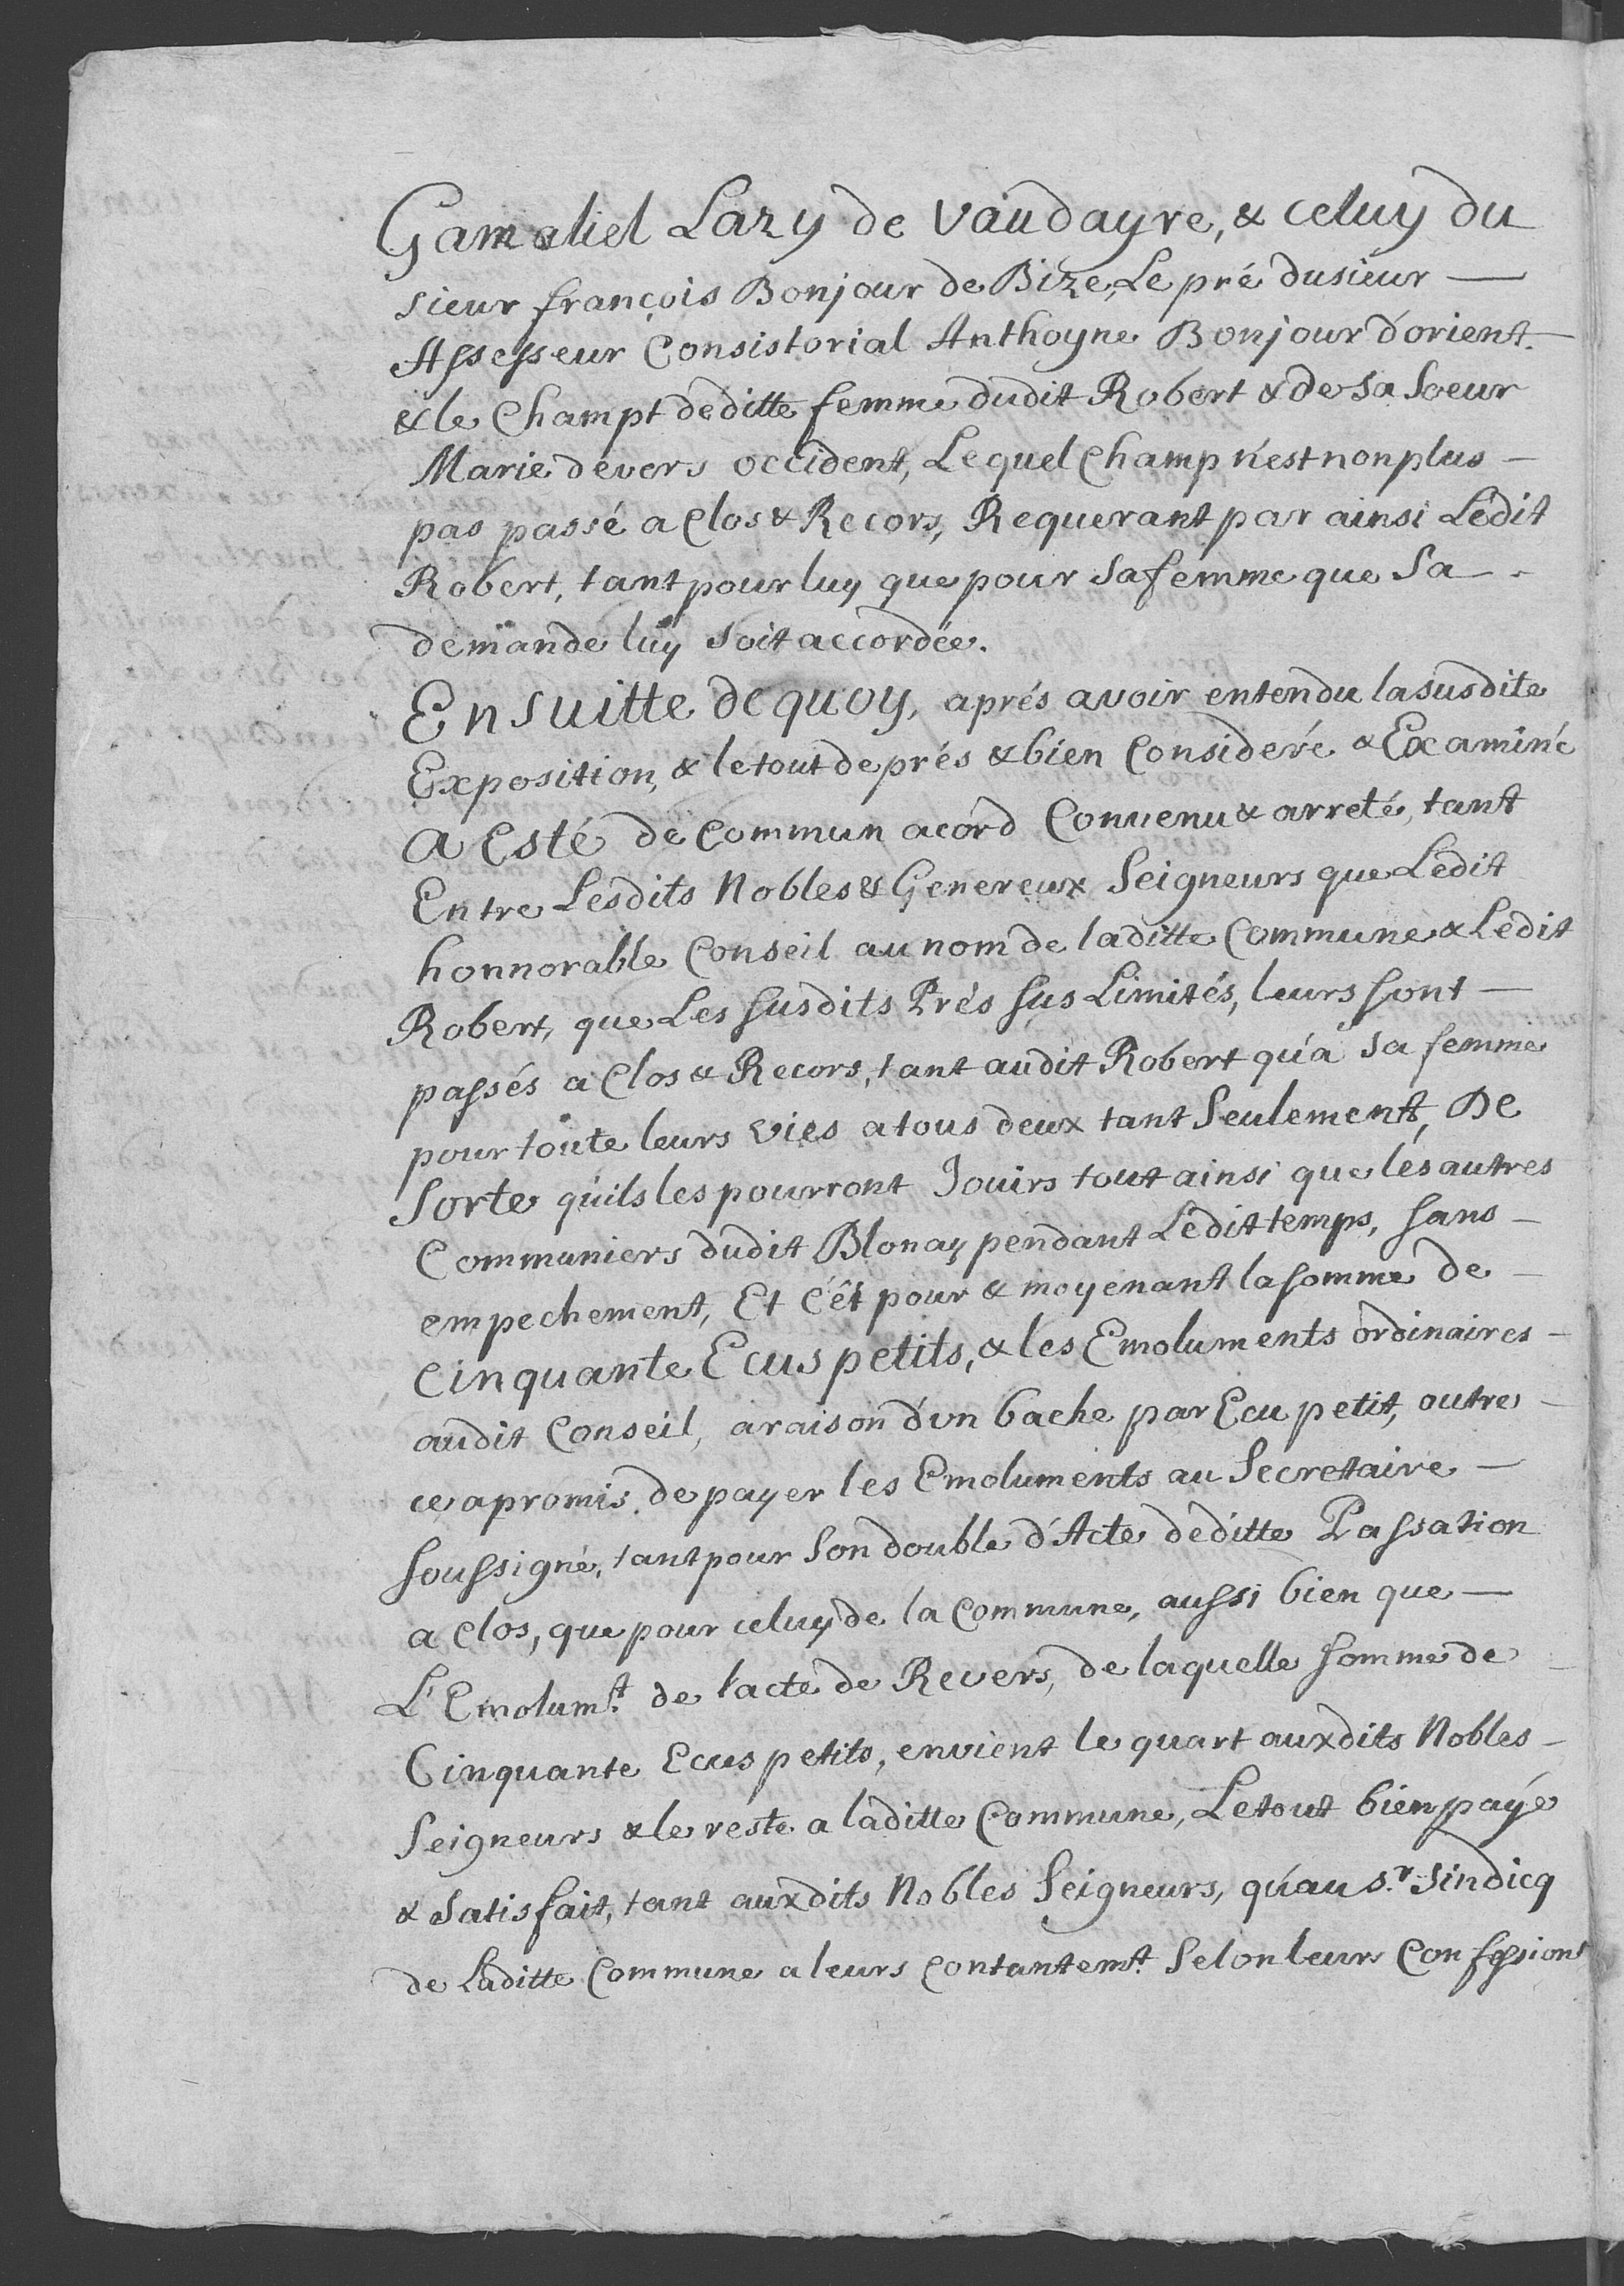 Gamaliel Lazy de Vaudayre, & celuy du
sieur françois Bonjour de Bize, Le pré dusieur —
Assesseur Consistorial Anthoyne Bonjour d'orient. —
& le Champt deditte femme dudit Robert & de sa soeur
Marie devers occident, Lequel Champ n'est non plus —
pas passé a Clos & Recors, Requerant par ainsi Ledit
Robert, tant pour luy que pour sa femme que Sa —
demande luy soit accordée.
Ensuitte dequoy, aprés avoir entendu la susdite
Exposition, & le tout de prés & bien Consideré & Examiné
a Esté de Commun acord Convenu & arreté, tant
Entre Lesdits Nobles & Genereux Seigneurs que Ledit
honnorable Conseil au nom de laditte Commune & Ledit
Robert, que Les susdits Prés sus Limités, leurs sont —
passés a Clos & Recors, tant audit Robert qu'a sa femme
pour toute leurs vies a tous deux tant Seulement, De
Sorte qu'ils les pourront Jouirs tout ainsi que les autres
Communiers dudit Blonay pendant Ledit temps, sans —
empechement, Et c'ét pour & moyenant la somme de —
Cinquante Ecus petits, & les Emoluments ordinaires —
audit Conseil, a raison d'un bache par Ecu petit, outre —
ce a promis de payer les Emoluments au Secretaire —
soussigné, tant pour Son double d'Acte deditte Passation
a Clos, que pour celuy de la Commune, aussi bien que —
L'Emolumt. de l'acte de Revers, de laquelle somme de —
Cinquante Ecus petits, envient le quart auxdits Nobles —
Seigneurs & le reste a laditte Commune, Le tout bien payé
& Satisfait, tant auxdits Nobles Seigneurs, qu'au sr. Sindicq
de Laditte Commune a leurs Contantemt. Selon leurs Confession